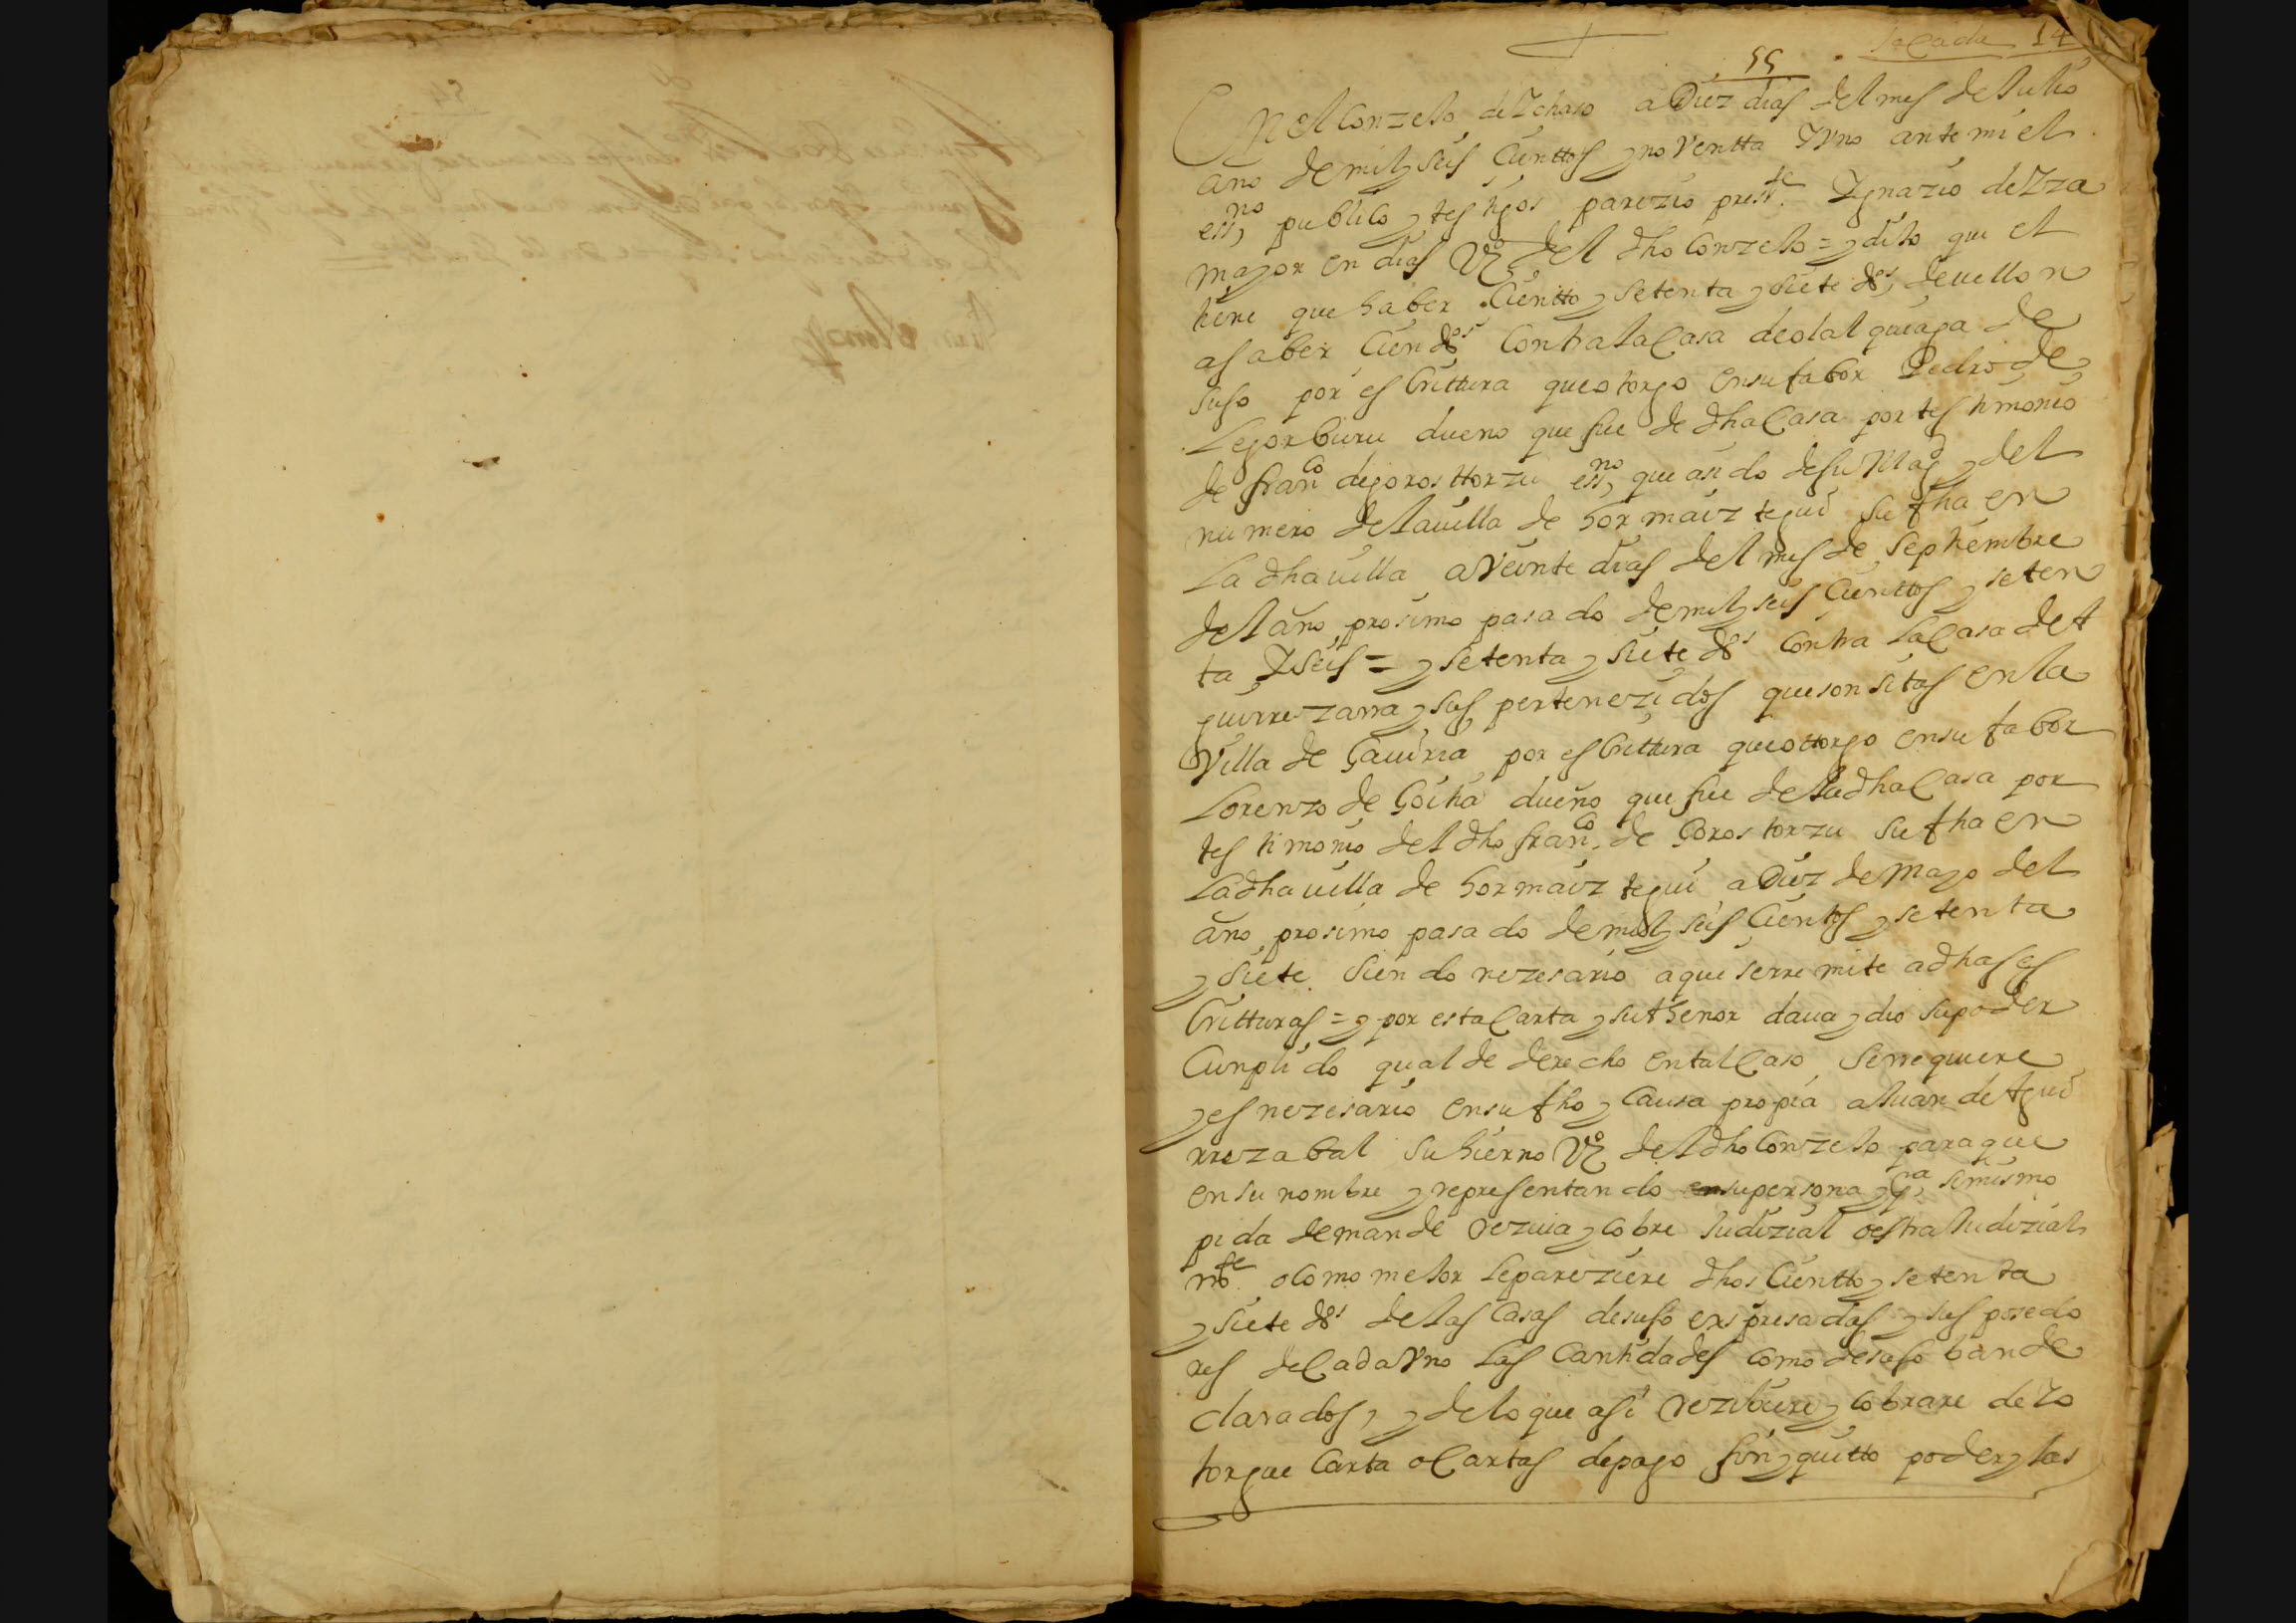 sacada 14
55
En el Conzejo de Ychaso a Diez dias del mes de Julio
año de mil y seis Cienttos y noventta Y Uno ante mi el
essno, publico y testigos parezio preste. Ygnazio de Yza
mayor en dias Vzo del dho Conzejo = y dijo que el
tiene que haber Cientto y setenta y siete dos, de vellon
a saber Cien dos Contra la Casa de olalquiaga de
suso por esCrittura que otorgo en su fabor Pedro de
Legorburu dueno que fue de dha Casa por testimonio
de franco de gorosttorzu essno, que a sido de su Magd y del
numero de la villa de hormaiztegui su fha en
La dha villa a Veinte dias del mes de septiembre
del año prosimo pasado de mil y seis Cienttos y seten
ta Y seis = y setenta y siete dos Contra La Casa de A
guirrezarra y sus pertenezidos que son sitas en la
Villa de Gaviria por esCrittura que ottorgo en su fabor
Lorenzo de Goitia dueño que fue de la dha Casa por
testimonio del dho franco. de Gorostorzu su fha en
La dha villa de hormaiztegui a Diez de Mayo del
año prosimo pasado de mil y seis Cientos y setenta
y siete. siendo nezesario a que serremite a dhas es
Critturas = y por esta Carta y su thenor dava y dio su poder
Cunplido qual de derecho en tal Caso serrequiere
y es nezesario en su fho y Causa propia a Juan de Agui
rrezabal su hierno Vzo del dho Conzejo para que
en su nombre y representando su persona y Pa, simismo
pida demande rezivia y cobre Judizial o estraJudizial
mte. o como mejor le pareziere dhos Cientto y setenta
y siete dos de las Casas de suso expresadas y sus posedo
res de Cada Uno Las Cantidades como de suso ban de
clarados, y de lo que asi reziviere y cobrare de Y o
torgue Carta o Cartas de pago fin y quitto poder y las